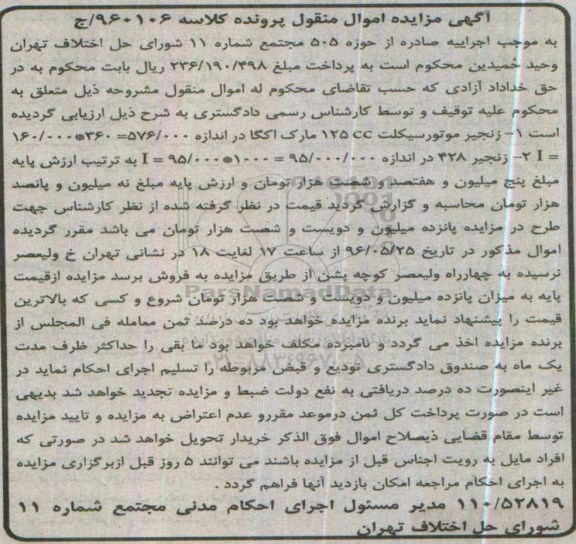 آگهی مزایده اموال منقول پرونده کلاسه ۹۶۰۱۰۶/ج
به موجب اجراییه صادره از حوزه ۵۰۵ مجتمع شماره ۱۱ شورای حل اختلاف تهران
وحید خمیدین محکوم است به پرداخت مبلغ ۲۳۶/۱۹۰/۴۹۸ ریال بابت محکوم به در
حق خداداد آزادی که حسب تقاضای محکوم له اموال منقول مشروحه ذیل متعلق به
محکوم علیه توقیف و توسط کارشناس رسمی دادگستری به شرح ذیل ارزیابی گردیده
است ۱- زنجیر موتورسیکلت ۱۲۵ cc مارک اکگا در اندازه ۵۷۶/۰۰۰= ۳۶۰*۱۶۰/۰۰۰
= I ۲- زنجیر ۴۲۸ در اندازه ۹۵/۰۰۰/۰۰۰ = ۱۰۰۰*۹۵/۰۰۰ = I به ترتیب ارزش پایه
مبلغ پنج میلیون و هفتصد و شصت هزار تومان و ارزش پایه مبلغ نه میلیون و پانصد
هزار تومان محاسبه و گزارش گردید قیمت در نظر گرفته شده از نظر کارشناس جهت
طرح در مزایده پانزده میلیون و دویست و شصت هزار تومان می باشد مقرر گردیده
اموال مذکور در تاریخ ۹۶/۰۵/۲۵ از ساعت ۱۷ لغایت ۱۸ در نشانی تهران خ ولیعصر
نرسیده به چهارراه ولیعصر کوچه پشن از طریق مزایده به فروش برسد مزایده ازقیمت
پایه به میزان پانزده میلیون و دویست و شصت هزار تومان شروع و کسی که بالاترین
قیمت را پیشنهاد نماید برنده مزایده خواهد بود ده درصد ثمن معامله فی المجلس از
برنده مزایده اخذ می گردد و نامبرده مکلف خواهد بود ما بقی را حداکثر ظرف مدت
یک ماه به صندوق دادگستری تودیع و قبض مربوطه را تسلیم اجرای احکام نماید در
غیر اینصورت ده درصد دریافتی به نفع دولت ضبط و مزایده تجدید خواهد شد بدیهی
است در صورت پرداخت کل ثمن درموعد مقررو عدم اعتراض به مزایده و تایید مزایده
توسط مقام قضایی ذیصلاح اموال فوق الذکر خریدار تحویل خواهد شد در صورتی که
افراد مایل به رویت اجناس قبل از مزایده باشند می توانند ۵ روز قبل ازبرگزاری مزایده
به اجرای احکام مراجعه امکان بازدید آنها فراهم گردد .
۱۱۰/۵۲۸۱۹ مدیر مسئول اجرای احکام مدنی مجتمع شماره ۱۱
شورای حل اختلاف تهران
ParsNamadData
۰۲۱-۸۸۳۴۹۶۷۰-۵